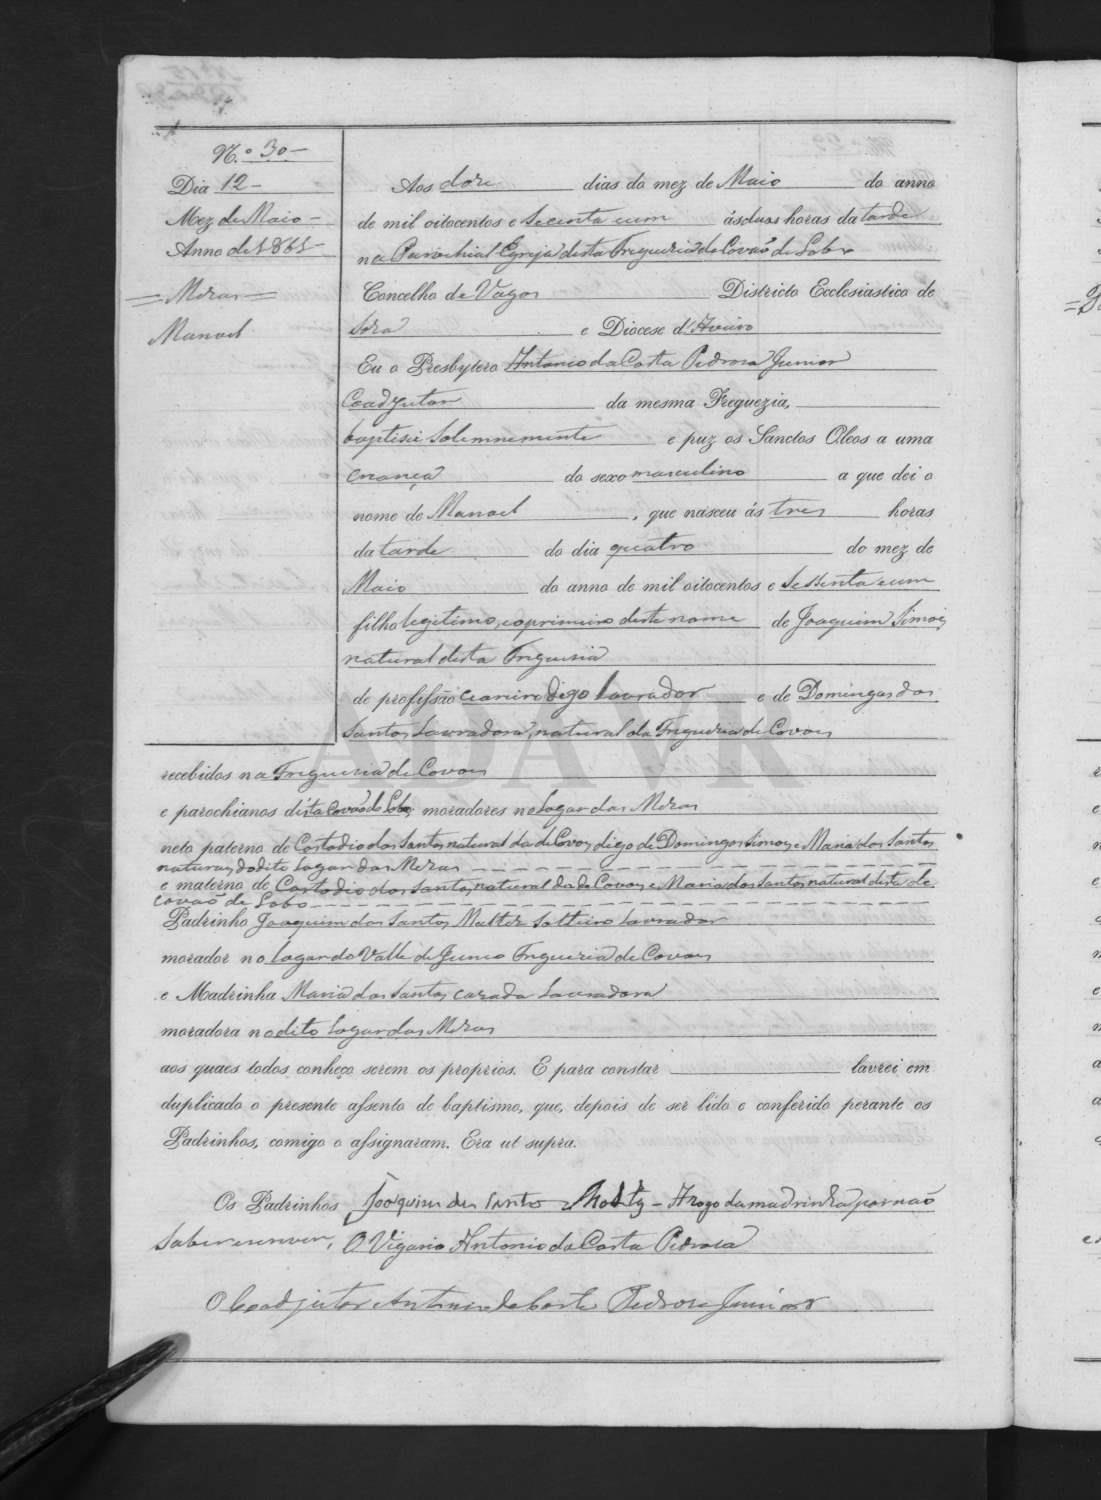 N.º 30 -
Dia 12 -
Mez de Maio -
Anno de 1861
= Mezas =
Manoel
Aos doze dias do mez de Maio do anno
de mil oitocentos e Secenta eum ás duas horas da tarde
na Parochial Egreja desta Freguezia de Covaõ de Lobo
Concelho de Vagos Districto Ecclesiastico de
Soza e Diocese d'Aveiro
Eu o Presbytero Antonio da Costa Pedroza Junior
Coadjutor da mesma Freguezia,
baptisei Solemnemente e puz os Sanctos Oleos a uma
criança do sexo masculino a que dei o
nome de Manoel, que nasceu ás tres horas
da tarde do dia quatro do mez de
Maio do anno de mil oitocentos e Sessenta eum
filho legitimo, eoprimeiro deste nome de Joaquim Simois
natural desta Freguesia
de profissão digo Lavrador e de Domingas dos
Santos Lavradora, natural da Freguezia de Covois
recebidos na Freguesia de Covois
e parochianos desta Covaõ de Lobo, moradores no Lugar das Mezas
neto paterno de Costodio dos Santos natural da de Covois digo de Domingos Simois e Maria dos Santos
naturais do dito Lugar das Mezas
e materno de Costodio dos Santos, natural da de Covois e Maria dos Santos natural desta de
Covaõ de Lobo
Padrinho Joaquim dos Santos Solteiro Lavrador
morador no lugar do Valle de Junco Freguezia de Covois
e Madrinha Maria dos Santos cazada Lavradora
moradora no dito Lugar das Mezas
aos quaes todos conheço serem os proprios. E para constar lavrei em
duplicado o presente assento de baptismo, que, depois de ser lido e conferido perante os
Padrinhos, comigo o assignaram. Era ut supra.
Os Padrinhos Joaquim dos Santos - Arogo da madrinha por naõ
Saber escrever, O Vigario Antonio da Costa Pedroza
O Coadjutor Antonio da Costa Pedroza Junior
ADAVR